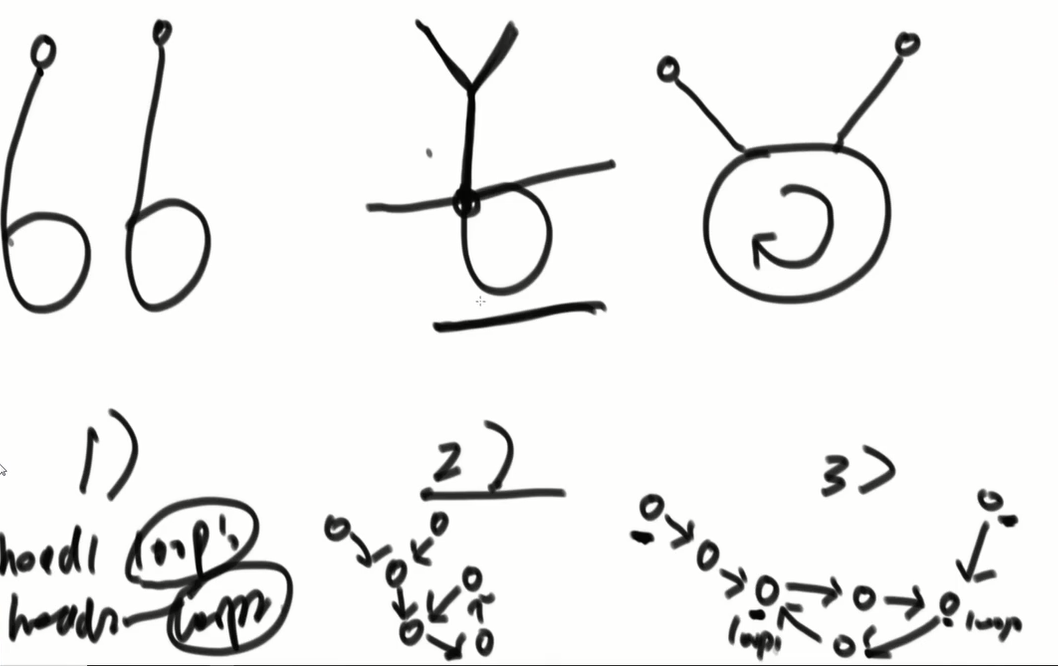 1) 2) 3)
head1 loop1
head2 loop2
loop1 loop